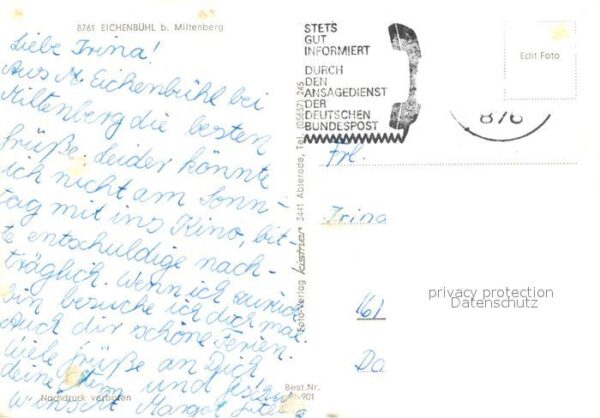 8761 EICHENBÜHL b. Miltenberg
Liebe Irina!
Aus Eichenbühl bei
Miltenberg die besten
Grüße. Leider könnte
ich nicht am Sonn-
tag mit ins Kino, bit-
te entschuldige nach-
träglich. Wenn ich zurück
bin besuche ich dich mal.
Auch dir schöne Ferien.
Viele Grüße an Dich
deine Eltern und
wünscht Margot
Nachdruck verboten
Best.Nr.
901
Foto-Verlag kistner 3441 Abterode, Tel. (05657) 245
STETS
GUT
INFORMIERT
DURCH
DEN
ANSAGEDIENST
DER
DEUTSCHEN
BUNDESPOST
876
Echt Foto
Frl.
Irina
161
Da
privacy protection
Datenschutz